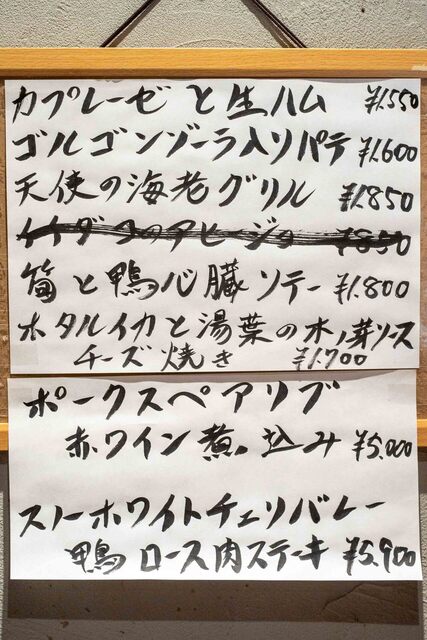 カプレーゼと生ハム ¥1.550
ゴルゴンゾーラ入りパテ ¥1.600
天使の海老グリル ¥1.850
イイダコのアヒージョ ¥850
筍と鴨心臓ソテー ¥1.800
ホタルイカと湯葉の木ノ芽ソース
チーズ焼き ¥1.700
ポークスペアリブ
赤ワイン煮込み ¥5.000
スノーホワイトチェリバレー
鴨ロース肉ステーキ ¥5.900